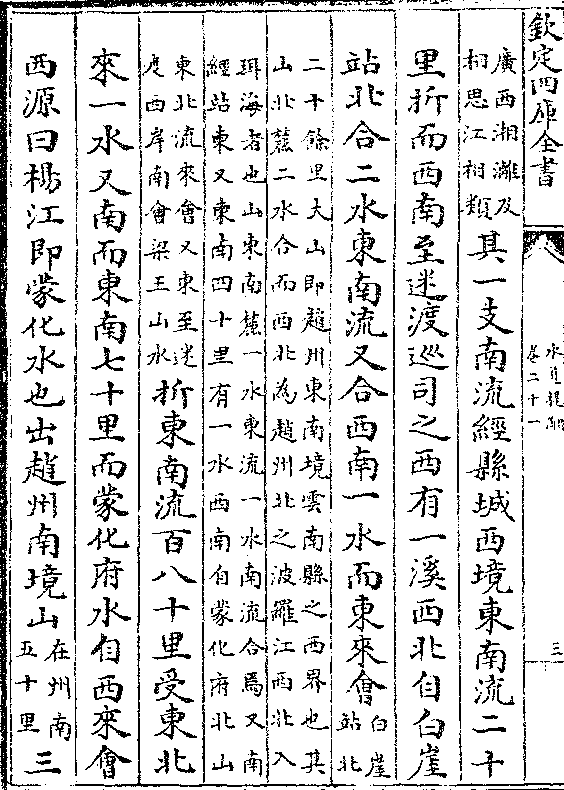 欽定四庫全書
水道提綱
卷二十一
三
廣西湘灕及
相思江相類
其一支南流經縣城西境東南流二十
里折而西南至迷渡巡司之西有一溪西北自白崖
站北合二水東南流又合西南一水而東來會
白崖
站北
二十餘里大山即趙州東南境雲南縣之西界也其
山北麓二水合而西北為趙州北之波羅江西北入
珥海者也山東南麓一水東流一水南流合焉又南
經站東又東南四十里有一水西南自蒙化府北山
東北流來會又東至迷
度西岸南會梁王山水
折東南流百八十里受東北
來一水又南而東南七十里而蒙化府水自西來會
西源曰楊江即蒙化水也出趙州南境山
在州南
五十里
三